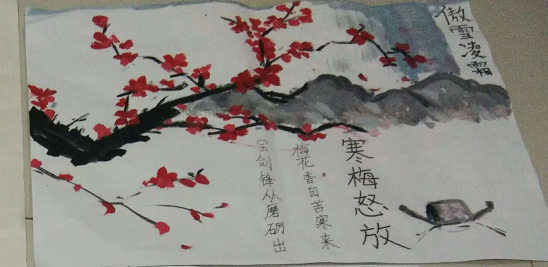 傲雪凌霜
寒梅怒放
梅花香自苦寒来
宝剑锋从磨砺出